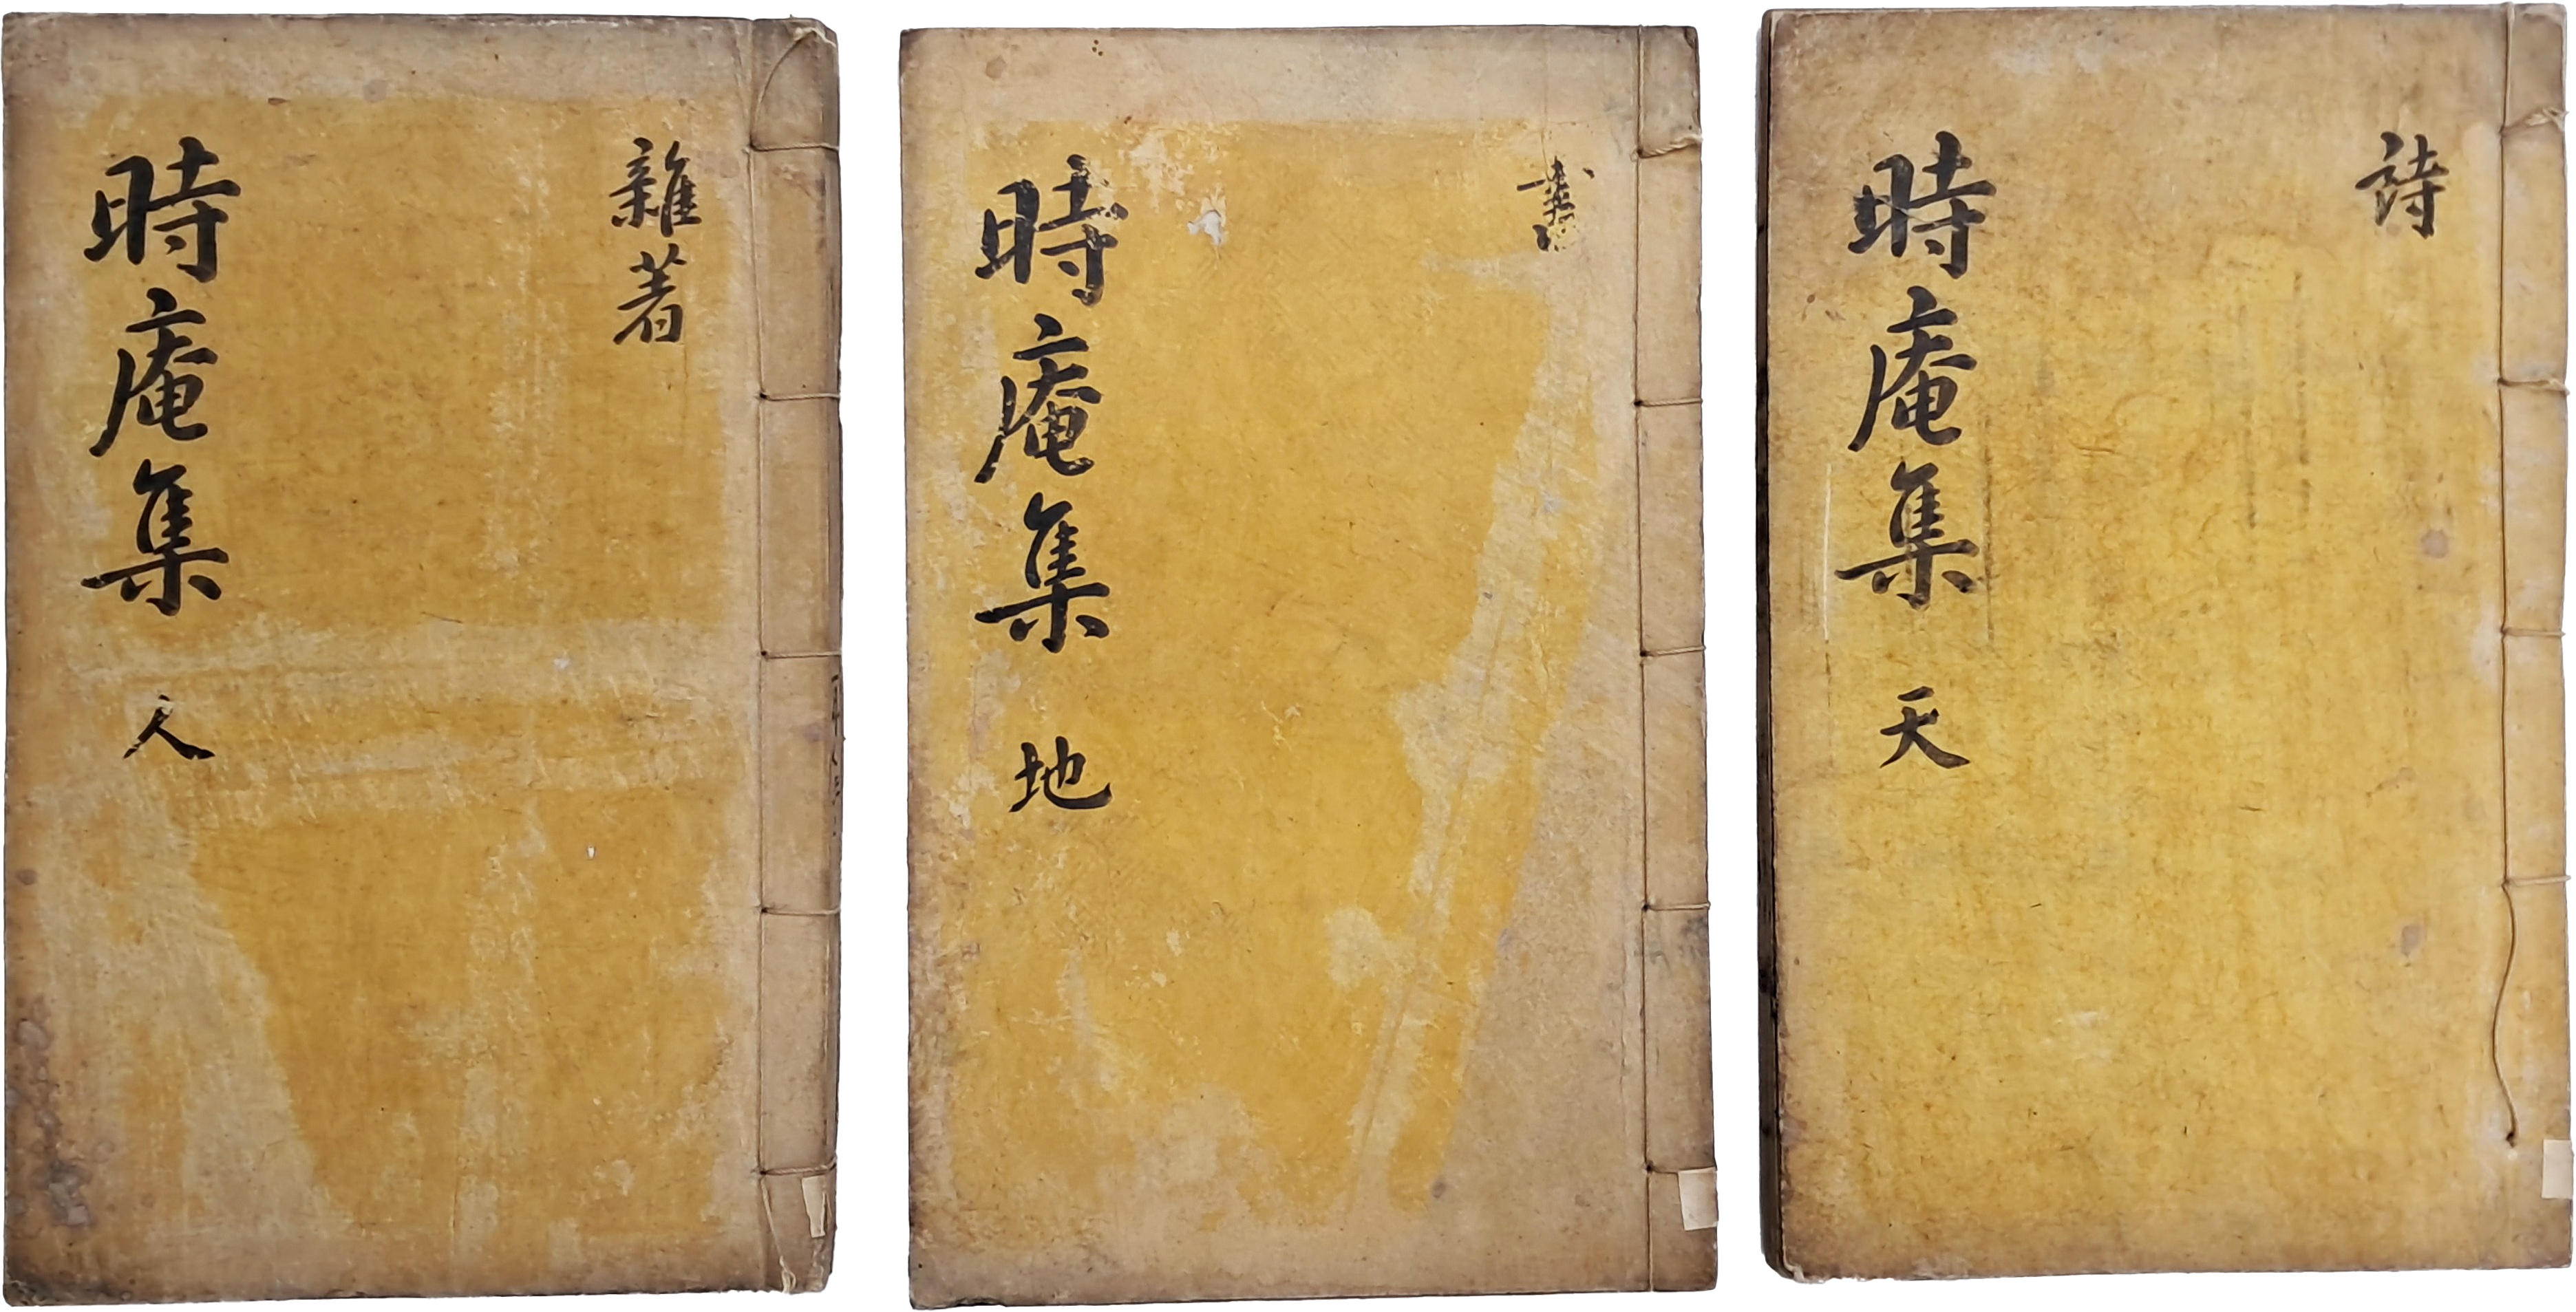 詩
時庵集 天
書
時庵集 地
雜著
時庵集 人